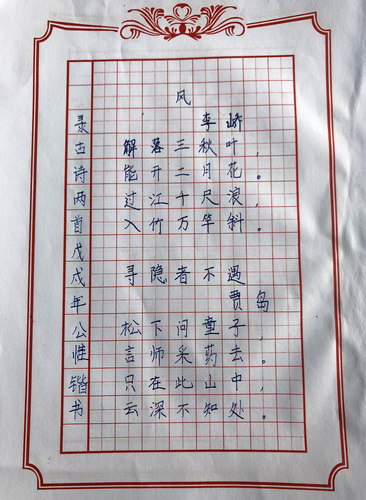 风
李峤
解落三秋叶，
能开二月花。
过江千尺浪，
入竹万竿斜。
寻隐者不遇
贾岛
松下问童子，
言师采药去。
只在此山中，
云深不知处。
录古诗两首戊戌年公惟锴书